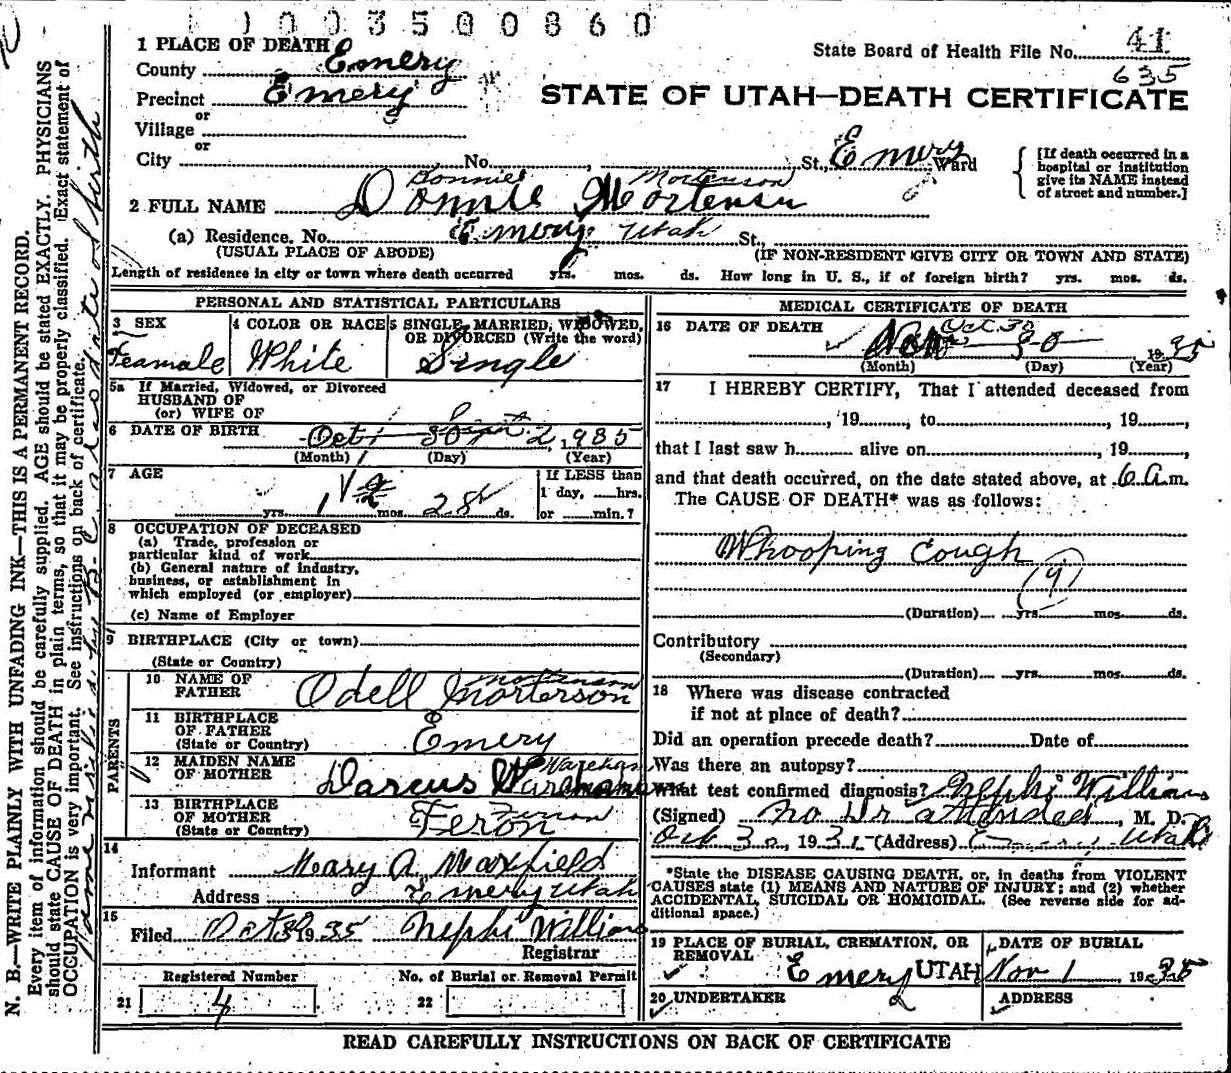 1003500860
1 PLACE OF DEATH
State Board of Health File No. 41
County Emery
635
Precinct Emery
STATE OF UTAH—DEATH CERTIFICATE
or
Village
or
City No. , St., Emery Ward
[If death occurred in a hospital or institution give its NAME instead of street and number.]
Bonnie Mortenson
2 FULL NAME Donnie Mortensen
(a) Residence. No. Emery Utah St.,
(USUAL PLACE OF ABODE) (IF NON-RESIDENT GIVE CITY OR TOWN AND STATE)
Length of residence in city or town where death occurred yrs. mos. ds. How long in U. S., if of foreign birth? yrs. mos. ds.
PERSONAL AND STATISTICAL PARTICULARS
3 SEX
Feamale
4 COLOR OR RACE
White
5 SINGLE, MARRIED, WIDOWED, OR DIVORCED (Write the word)
Single
5a If Married, Widowed, or Divorced
HUSBAND OF
(or) WIFE OF
6 DATE OF BIRTH Oct. 30 Sept. 2, 1935
(Month) (Day) (Year)
7 AGE
yrs. 1 mos. 28 ds.
If LESS than
1 day, hrs.
or min.?
8 OCCUPATION OF DECEASED
(a) Trade, profession or
particular kind of work
(b) General nature of industry,
business, or establishment in
which employed (or employer)
(c) Name of Employer
9 BIRTHPLACE (City or town)
(State or Country)
PARENTS
10 NAME OF
FATHER
Mortenson
Odell Morterson
11 BIRTHPLACE
OF FATHER
(State or Country)
Emery
12 MAIDEN NAME
OF MOTHER
Wareham
Darcus
13 BIRTHPLACE
OF MOTHER
(State or Country)
Ferron
Feron
14
Informant Mary A. Maxfield
Address Emery Utah
15
Filed Oct 30 1935 Nephi Williams
Registrar
Registered Number
21 4
No. of Burial or Removal Permit
22
MEDICAL CERTIFICATE OF DEATH
16 DATE OF DEATH
Oct. 30
Nov 30 1935
(Month) (Day) (Year)
17 I HEREBY CERTIFY, That I attended deceased from
, 19 , to , 19 ,
that I last saw h alive on , 19 ,
and that death occurred, on the date stated above, at 6 a.m.
The CAUSE OF DEATH* was as follows:
Whooping Cough
(9)
(Duration) yrs. mos. ds.
Contributory
(Secondary)
(Duration) yrs. mos. ds.
18 Where was disease contracted
if not at place of death?
Did an operation precede death? Date of
Was there an autopsy?
What test confirmed diagnosis? Nephi Williams
(Signed) No Dr attended, M. D.
Oct 30, 1935 (Address) Emery, Utah
*State the DISEASE CAUSING DEATH, or, in deaths from VIOLENT
CAUSES state (1) MEANS AND NATURE OF INJURY; and (2) whether
ACCIDENTAL, SUICIDAL OR HOMICIDAL. (See reverse side for ad-
ditional space.)
19 PLACE OF BURIAL, CREMATION, OR
REMOVAL
Emery UTAH
DATE OF BURIAL
Nov 1 1935
20 UNDERTAKER
ADDRESS
READ CAREFULLY INSTRUCTIONS ON BACK OF CERTIFICATE
N. B.—WRITE PLAINLY WITH UNFADING INK—THIS IS A PERMANENT RECORD.
Every item of information should be carefully supplied. AGE should be stated EXACTLY. PHYSICIANS
should state CAUSE OF DEATH in plain terms, so that it may be properly classified. Exact statement of
OCCUPATION is very important. See instructions on back of certificate.